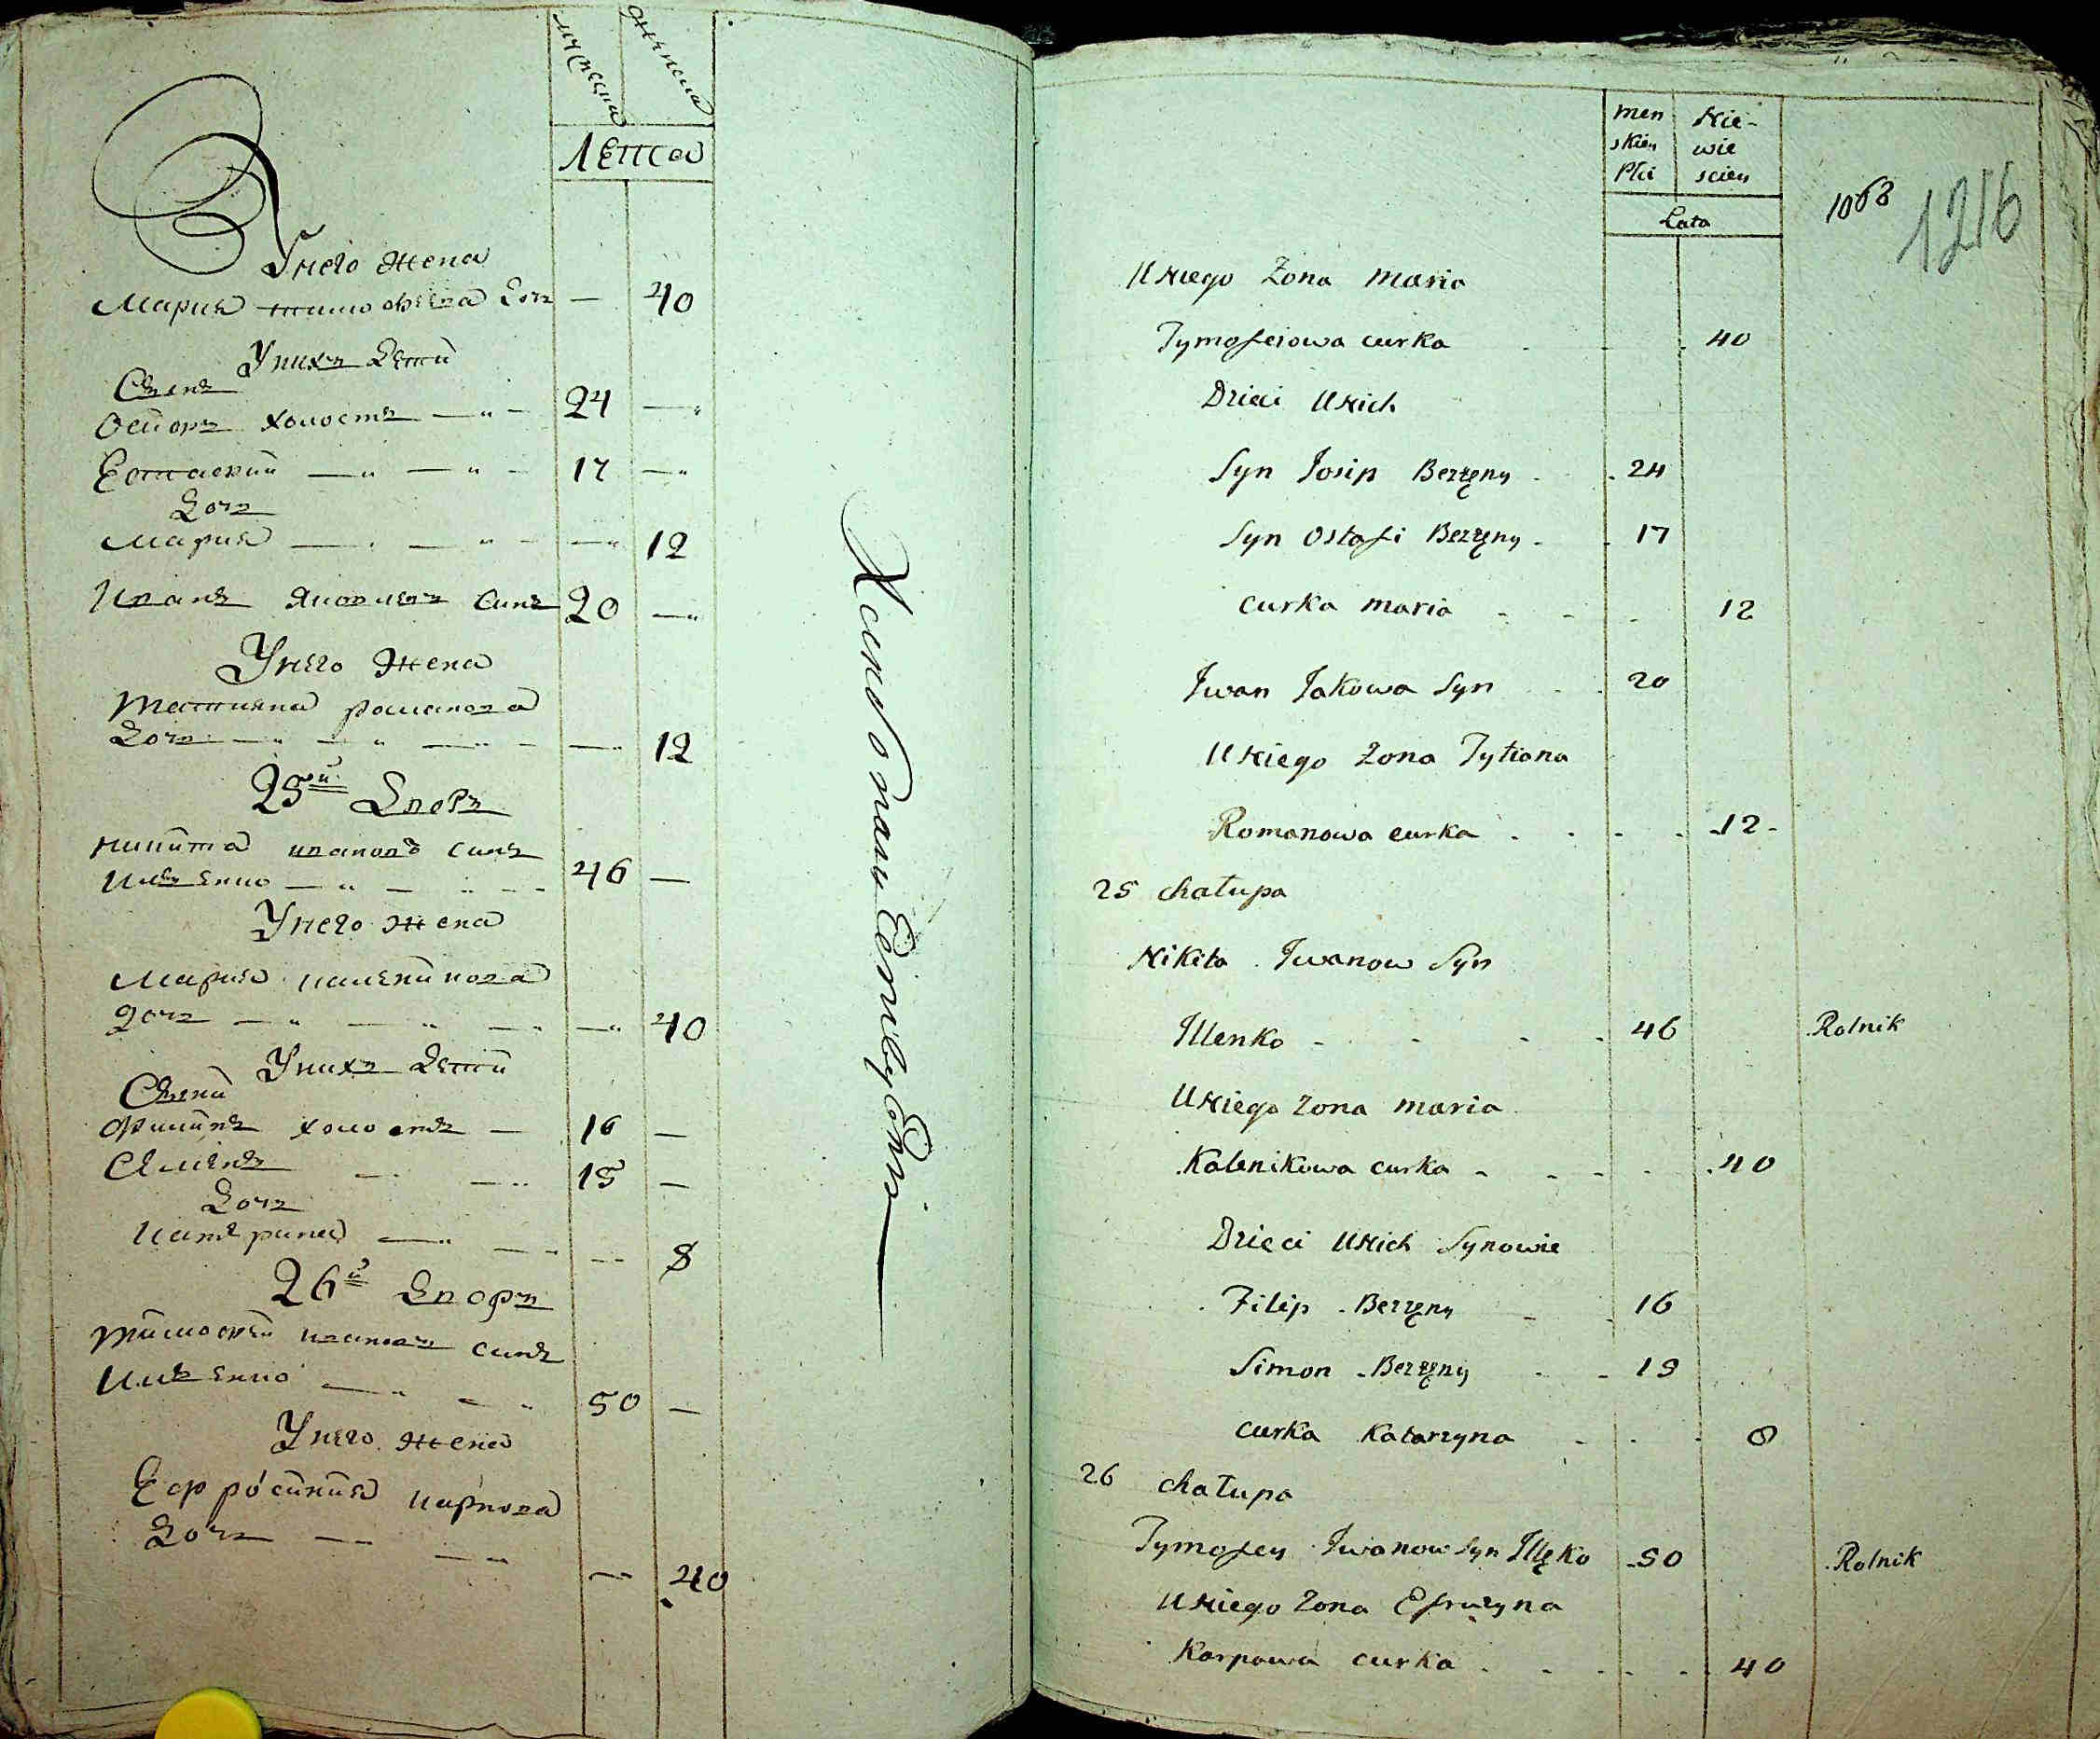 мужеска
женска
лета
У него жена
Мария тимофеева доч — 40
У них дети
Сынъ
Осипъ холостъ — 24 —
Естафий — 17 —
Доч
Мария — — 12
Иванъ Яковлевъ синъ 20 —
У него жена
Татияна романова
Доч — — 12
25й Дворъ
Никита ивановъ синъ
Илѣенко — 46 —
У него жена
Мария каленикова
Доч — — 40
У них дети
Сыни
Филипъ холостъ — 16 —
Семенъ — 15 —
Доч
Катерина — — 8
26й Дворъ
Тимофей ивановъ синъ
Илъенко — 50 —
У него жена
Ефросиния карпова
Доч — — 40
men
skiey
Płci
Nie-
wie
sciey
Lata
1068
1216
U Niego Zona Maria
Tymofeiowa curka 40
Dzieci U Nich
Syn Josip Bezzęny 24
Syn Ostafi Bezzęny 17
Curka Maria 12
Jwan Jakowa Syn 20
U Niego Zona Tytiana
Romanowa curka 12
25 chałupa
Nikita Jwanow Syn
Jllenko 46 Rolnik
U Niego Zona Maria
Kalenikowa curka 40
Dzieci U Nich Synowie
Filip Bezzęny 16
Simon Bezzęny 15
Curka Katarzyna 8
26 chałupa
Tymofey Jwanow Syn Jllęko 50 Rolnik
U Niego Zona Efruzyna
Karpowa curka 40